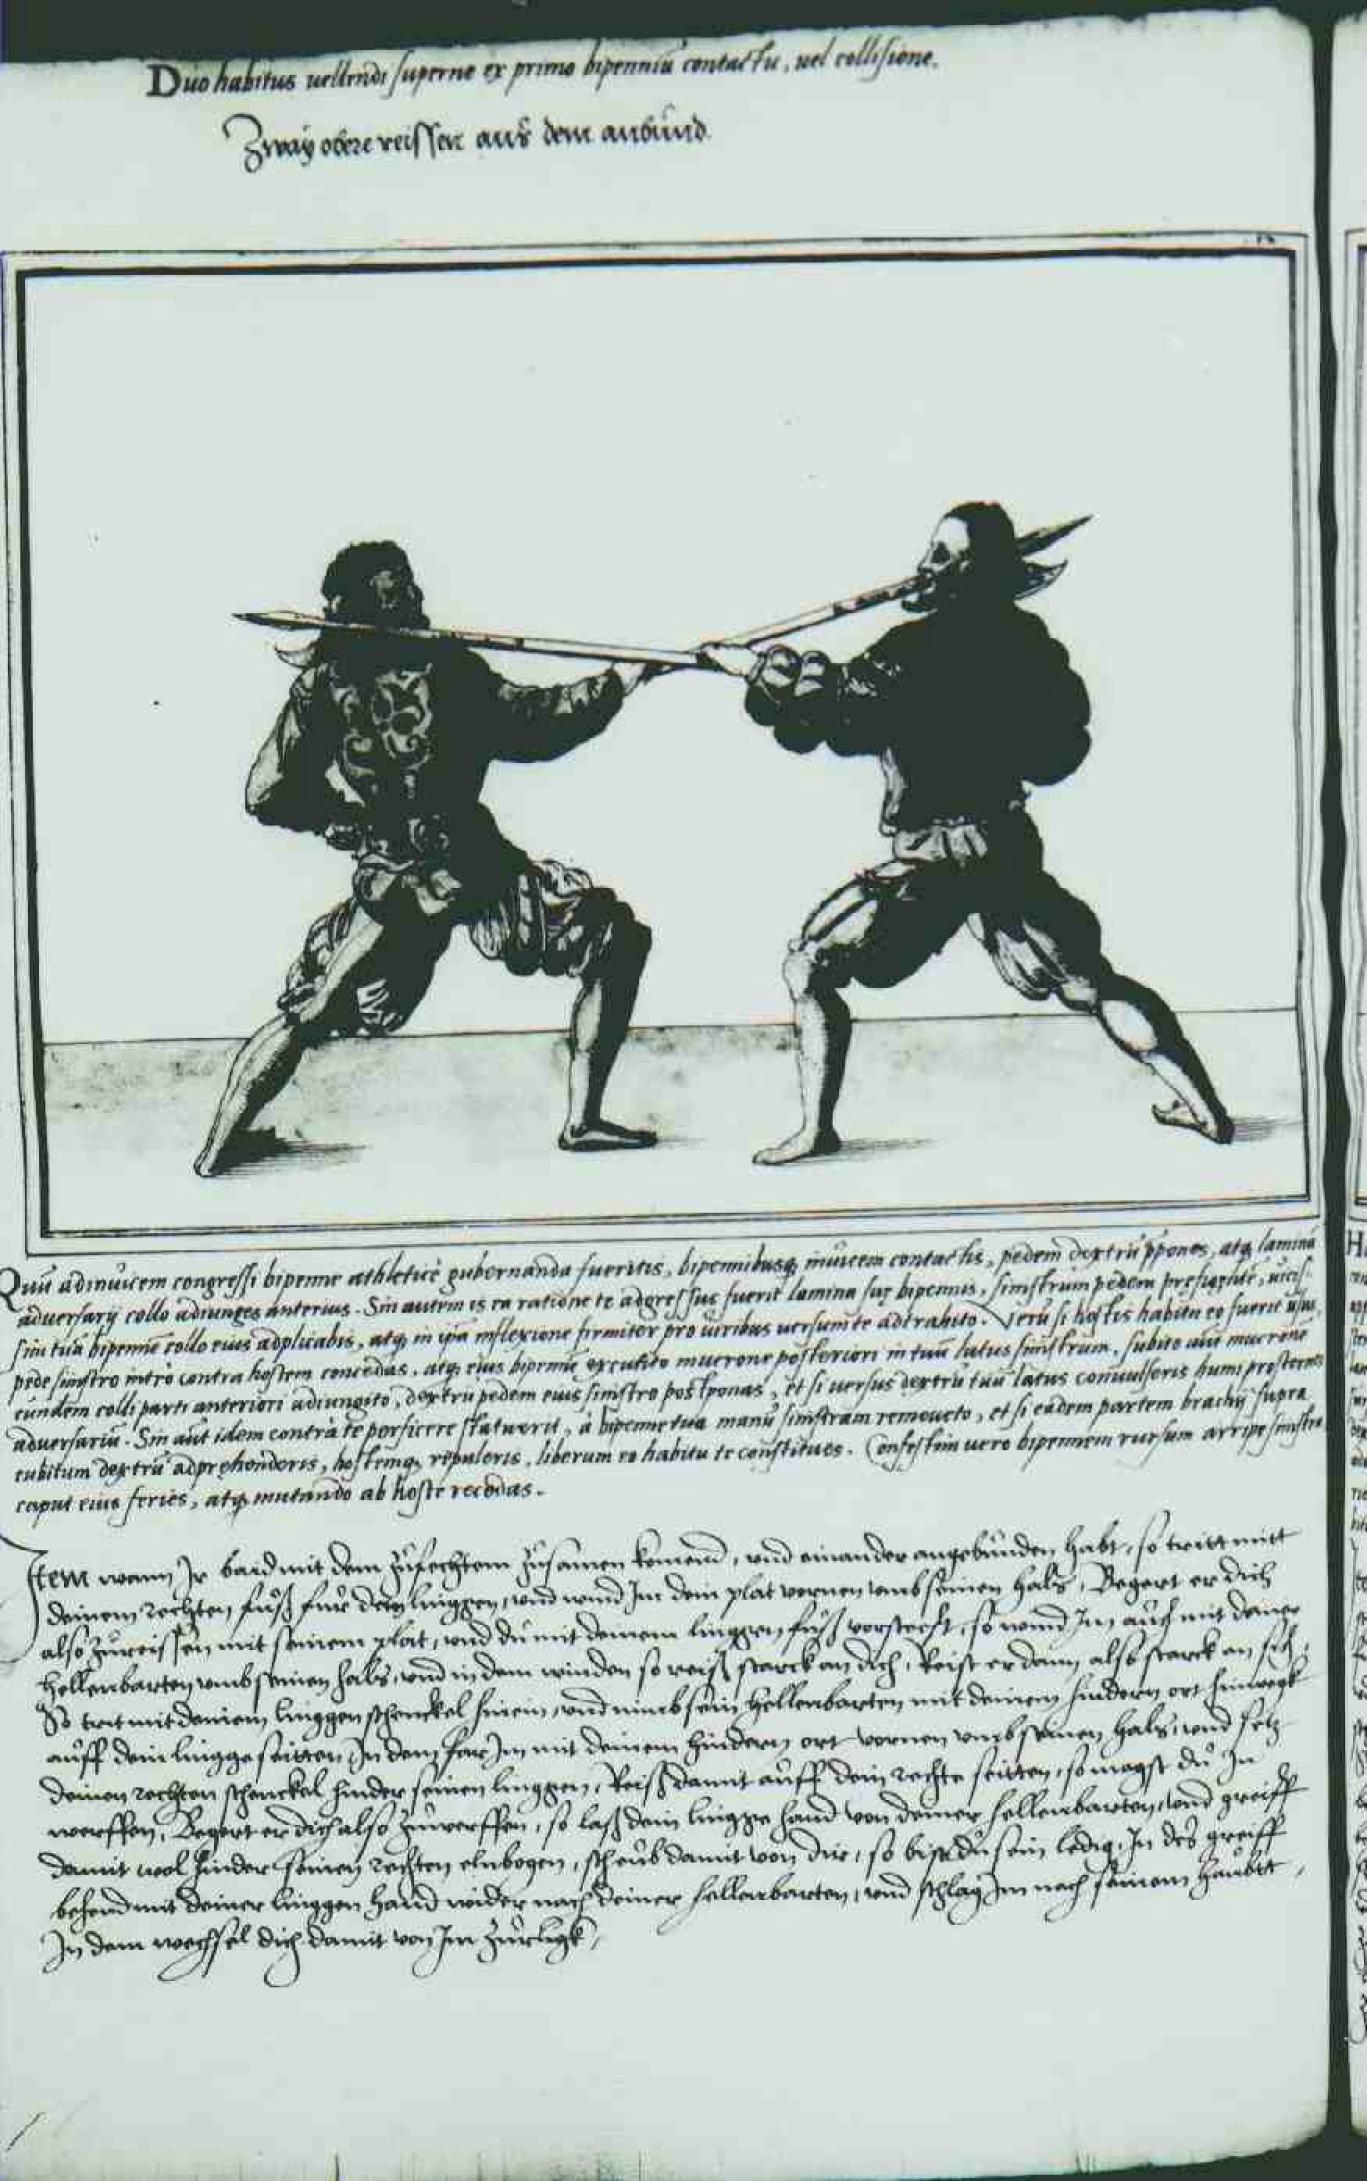 Duo habitus vellendi superne ex primo bipenniũ contactu, vel collisione.
Zway obere reissen aus dem anbund.
Quũ adinvicem congressi bipenne athleticè gubernanda fueritis, bipennibusq; invicem contactis, pedem dextrũ p̃pones, atq; laminã
adversarij collo adiunges anterius. Sin autem is ea ratione te adgressus fuerit lamina suę bipennis, sinistrum pedem pręfigente, vicis-
sim tuã bipennẽ collo eius adplicabis, atq; in ipsa inflexione firmiter pro viribus versum te adtrahito. Verũ si hostis habitu eo fuerit usus,
pede sinistro intrò contra hostem concedas, atq; eius bipennẽ excutito mucrone posteriori in tuũ latus sinistrum, subito aũt mucronẽ
eundem colli parti anteriori adiungito, dextrũ pedem eius sinistro postponas, et si versus dextrũ tuũ latus convulseris humi prosternes
adversariũ. Sin aũt idem contrà te perficere statuerit, à bipenne tua manũ sinistram removeto, et si eadem partem brachij supra
cubitum dextrũ adprehenderis, hostemq; repuleris, liberum eo habitu te constitues. Confestim vero bipennem rursum arripe sinistra
caput eius feries, atq; mutando ab hoste recedas.
Item wann Ir baid mit dem zůfechten zůsamen komend, und ainander angebunden habt, so tritt mitt
deinem rechten fuß fur dein linggen, und wind Im dein plat vornen umb seinen hals, Begert er dich
also zůreissen mit seinem plat, und du mit deinem linggen fuß vorsteest, so wind Im auch mit deiner
hellenbarten umb seinen hals, und in dem winden so reiß starck an dich, Reist er dann also starck an sich,
So trit mit deinem linggen schenckel hinein, und nimb sein hellenbarten mit deinem hindern ort hinweg
auff dein lingge seitten, In dem far Im mit deinem hindern ort vornen umb seinen hals, und setz
deinen rechten schenckel hinder seinen linggen, Reiß damit auff dein rechte seitten, so magst du In
werffen, Begert er dich also zůwerffen, so laß dein lingge hand von deiner hellenbarten, und greiff
damit wol hinder seinen rechten elnbogen, scheub damit von dir, so bist du sein ledig, In des greiff
behend mit deiner linggen hand wider nach deiner hellenbarten, und schlag Im nach seinem haubtt,
In dem wechsel dich damit von Im zůrugk,